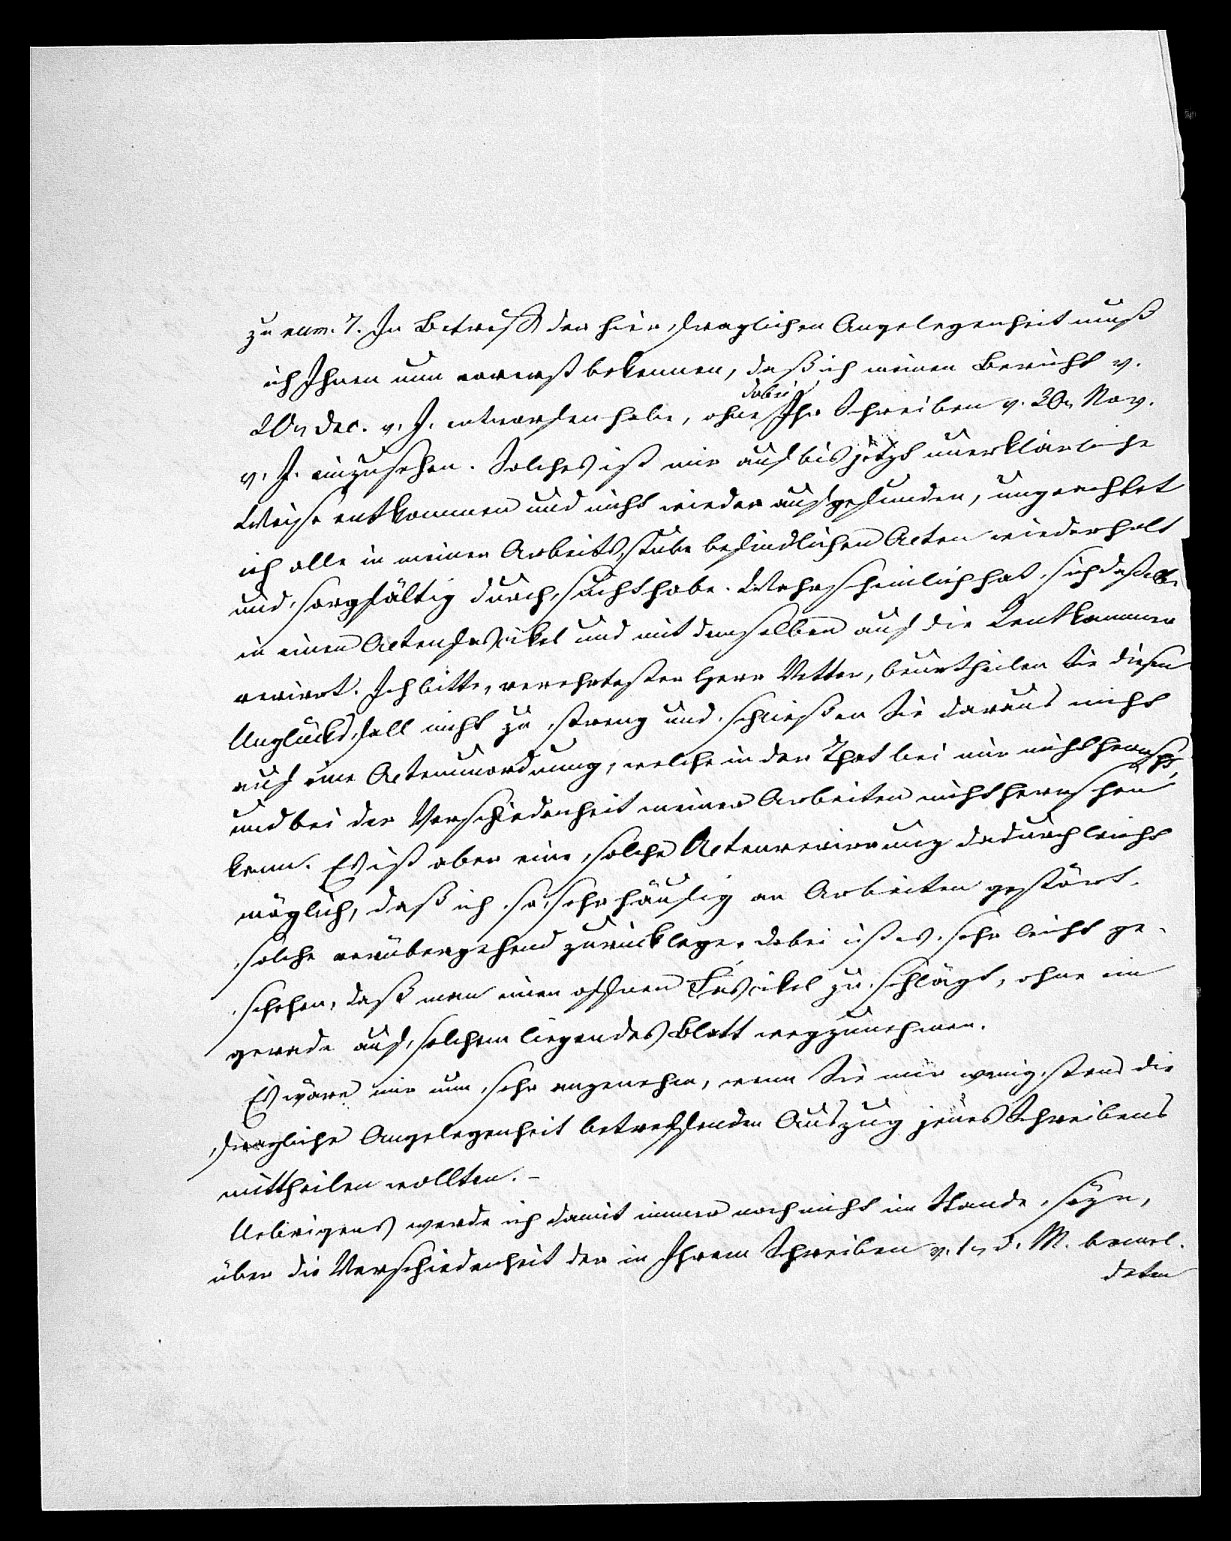 zu num. 7. In Betreff der hier fraglichen Angelegenheit muß
ich Ihnen nun vorerst bekennen, daß ich meinen Bericht v.
20n Dec. v. J. entworfen habe, ohne dabei Ihr Schreiben v. 30n Nov.
v. J. einzusehen. Solches ist mir auf bis jetzt unerklärliche
Weise entkommen und nicht wieder aufgefunden, ungeachtet
ich alle in meiner Arbeitsstube befindlichen Acten wiederholt
und sorgfältig durchsucht habe. Wahrscheinlich hat sich dasselbe
in einen Actenfascikel und mit demselben auf die Rentkammer
verirrt. Ich bitte, verehrtester Herr Vetter, beurtheilen Sie diesen
Unglücksfall nicht zu streng und schließen Sie daraus nicht
auf eine Actenunordnung, welche in der That bei mir nicht herrscht,
und bei der Verschiedenheit meiner Arbeiten nicht herrschen
kann. Es ist aber eine solche Actenverirrung dadurch leicht
möglich, daß ich so sehr häufig an Arbeiten gestört,
solche vorübergehend zurücklege. Dabei ist es sehr leicht ge-
schehen, daß man einen offnen Fascikel zuschlägt, ohne ein
gerade auf solchem liegendes Blatt wegzunehmen.
Es wäre mir nun sehr angenehm, wenn Sie mir wenigstens die
fragliche Angelegenheit betreffenden Auszug jenes Schreibens
mittheilen wollten. –
Uebrigens werde ich damit immer noch nicht im Stande seyn,
über die Verschiedenheit der in Ihrem Schreiben v. 1n d. M. bemel-
deten